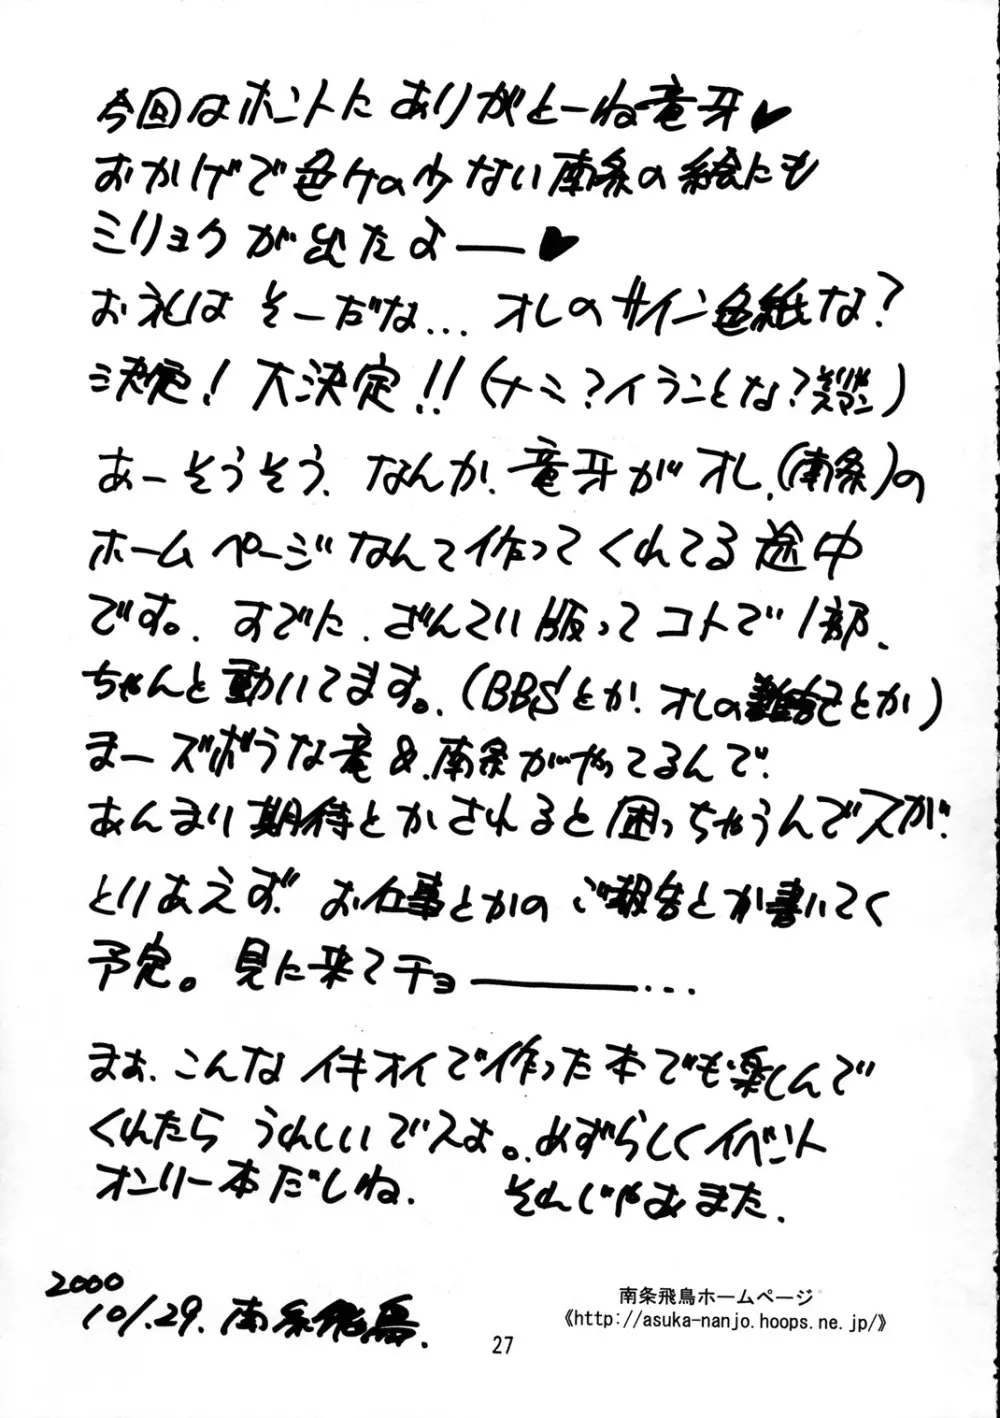 今回はホントに ありがとーね竜牙♥
おかげで色ケの少ない南条の絵にも
ミリョクが出たよ——♥
お礼は そーだな... オレのサイン色紙な?
決定! 大決定!! (ナミ?イランことな?
あーそうそう、なんか、竜牙がオレ、(南条)の
ホームページなんて作ってくれてる途中
です。すでに、ざんてい版ってコトで1部、
ちゃんと動いてます。(BBSとか、オレの雑記とか)
まーズボラな竜&南条がやってるんで、
あんまり期待とかされると困っちゃうんでスが、
とりあえず、お仕事とかの ご報告とか書いてく
予定。見に来てチョ———...
まぁ、こんなイキオイで作った本でも楽しんで
くれたら うれしいでスよ。めずらしくイベント
オンリー本だしね. それじゃあまた.
2000
10/.29. 南条飛鳥.
南条飛鳥ホームページ
《http://asuka-nanjo.hoops.ne.jp/》
27